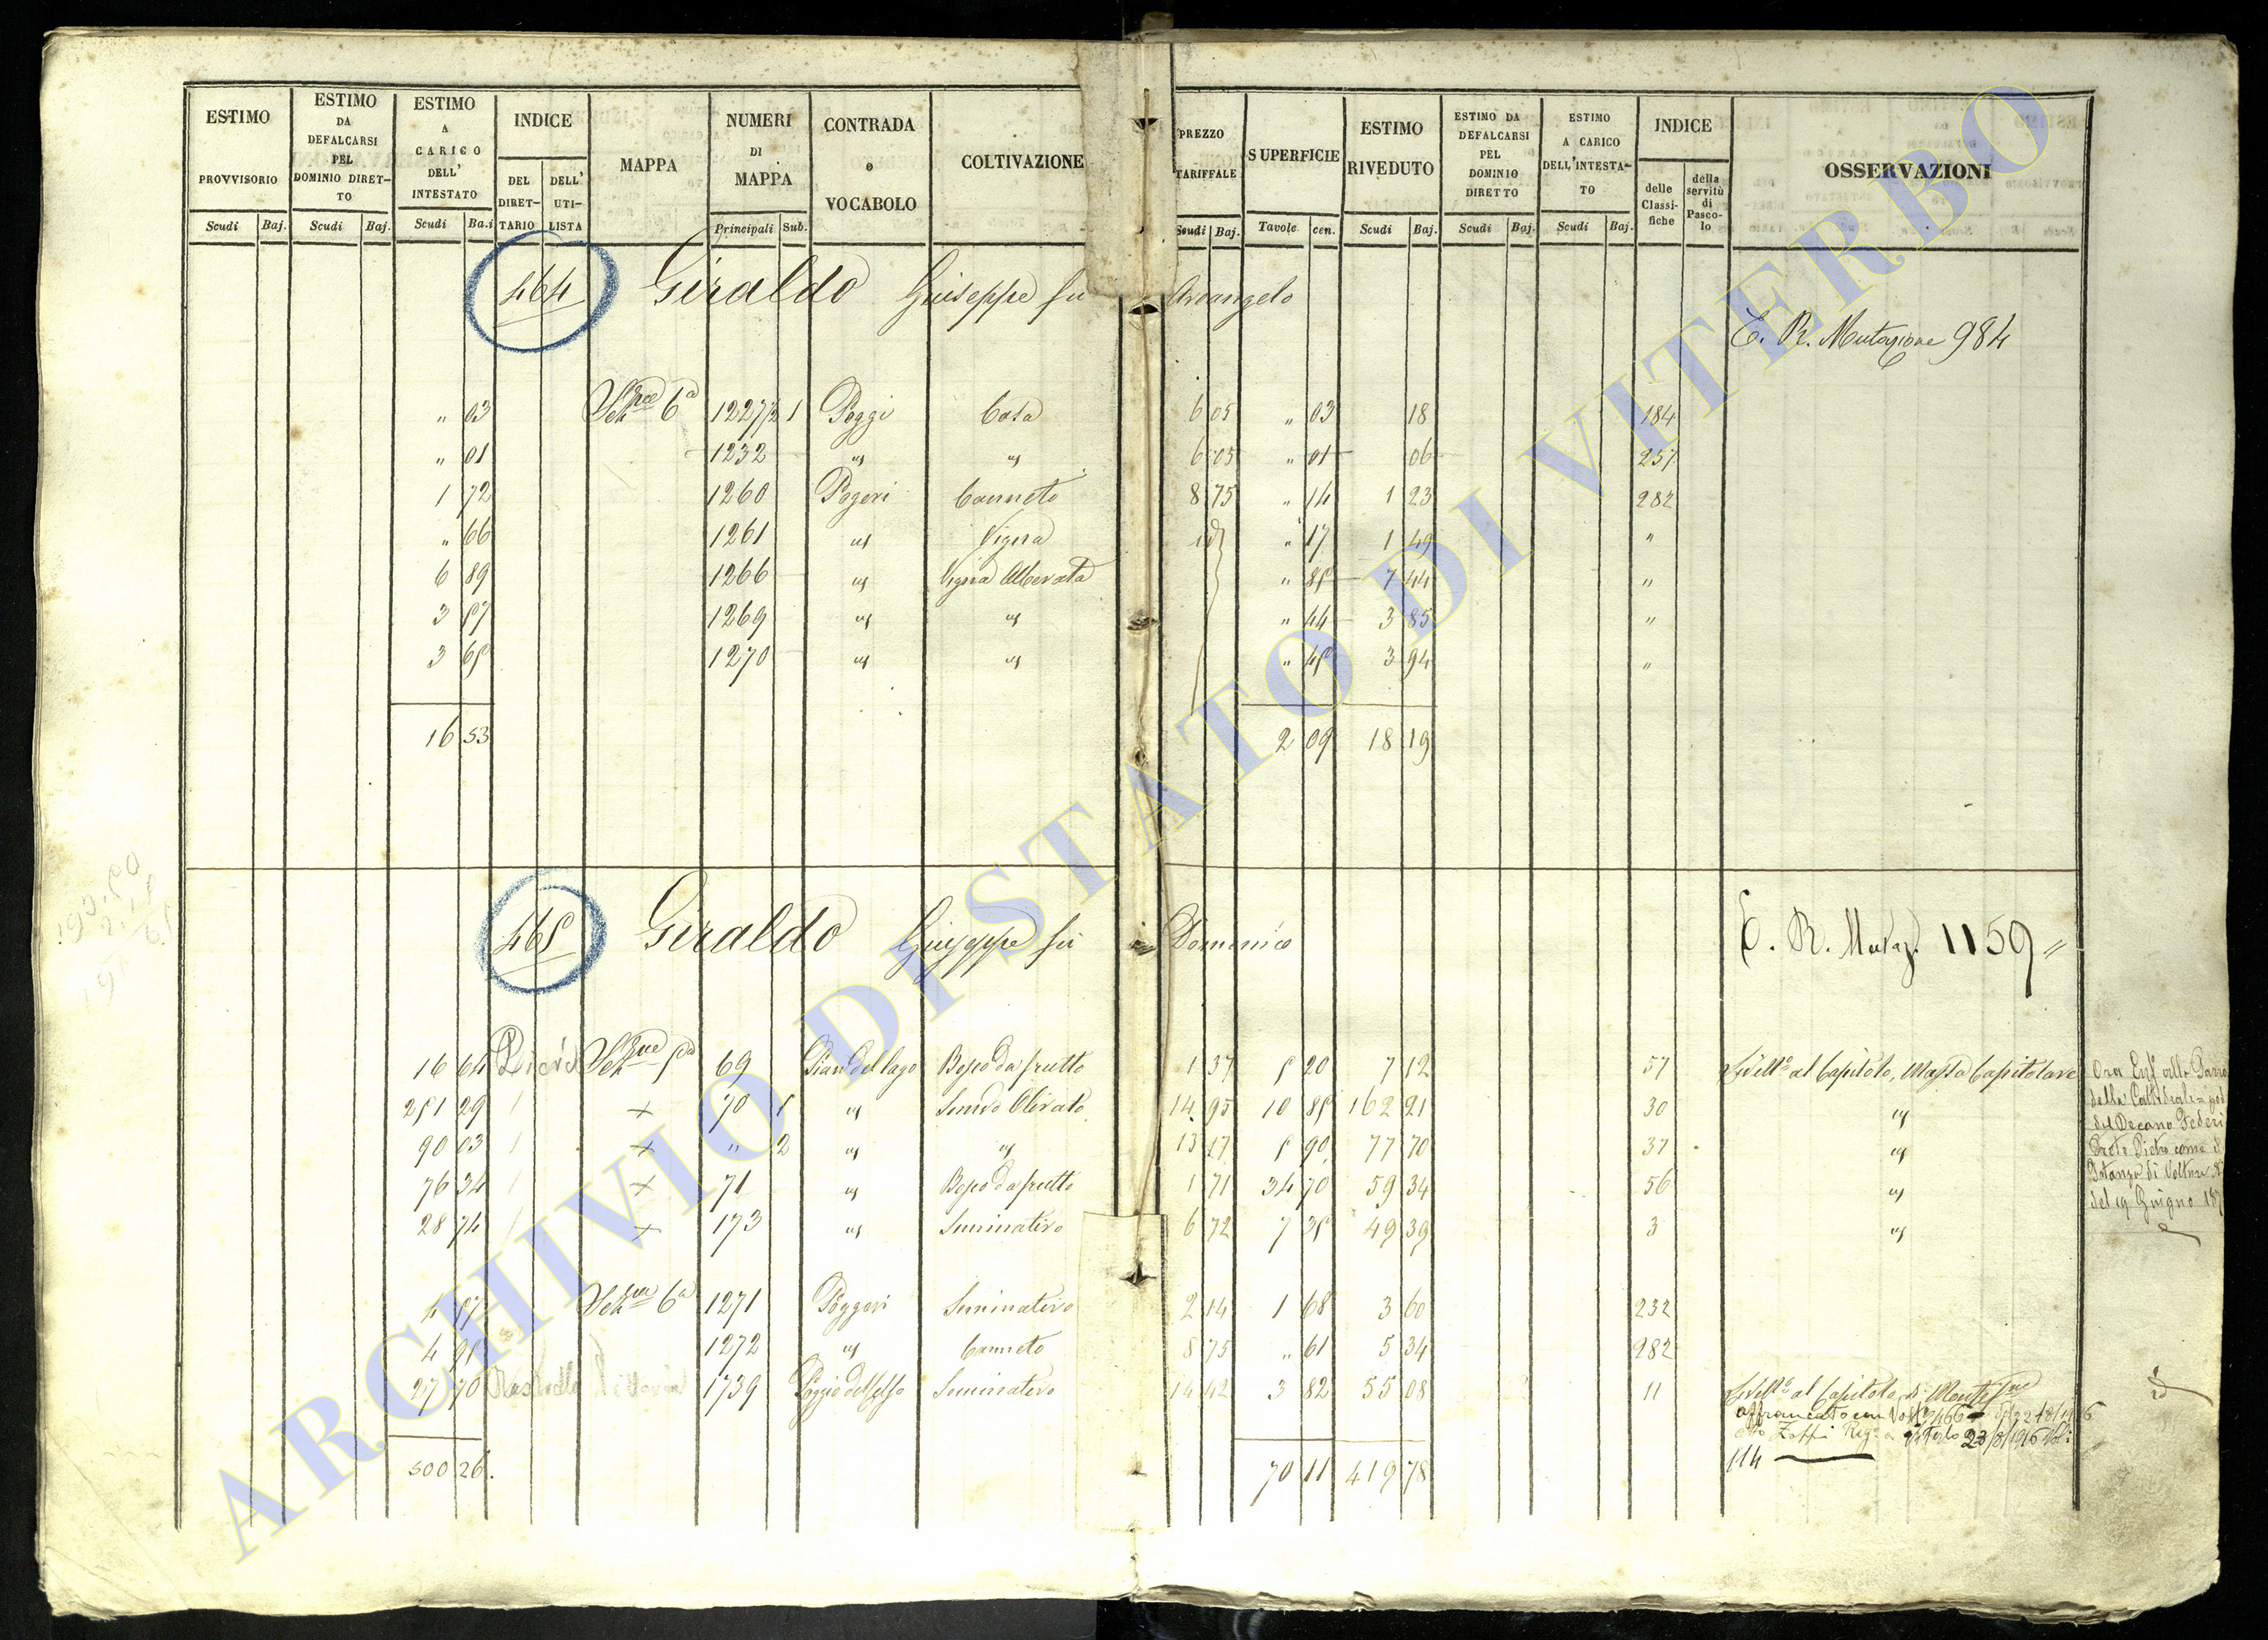 ESTIMO PROVVISORIO Scudi Baj.
ESTIMO DA DEFALCARSI PEL DOMINIO DIRET- TO Scudi Baj.
ESTIMO A CARICO DELL' INTESTATO Scudi Ba.i
INDICE DEL DIRET- TARIO DELL' UTI- LISTA
MAPPA
NUMERI DI MAPPA Principali Sub.
CONTRADA e VOCABOLO
COLTIVAZIONE
PREZZO TARIFFALE Scudi Baj.
SUPERFICIE Tavole cen.
ESTIMO RIVEDUTO Scudi Baj.
ESTIMO DA DEFALCARSI PEL DOMINIO DIRETTO Scudi Baj.
ESTIMO A CARICO DELL'INTESTA- TO Scudi Baj.
INDICE delle Classi- fiche della servitù di Pasco- lo
OSSERVAZIONI
464 Giraldo Giuseppe fu Arcangelo
E. R. Mutazione 984
" 03 6ª 1227/2 1 Poggi Casa 6 05 " 03 18 184
" 01 1232 " " 6 05 " 01 06 257
1 72 1260 Pogeri Canneto 8 75 " 14 1 23 282
" 66 1261 " Vigna id " 17 1 49 "
6 89 1266 " Vigna Alberata " 85 7 44 "
3 57 1269 " " " 44 3 85 "
3 65 1270 " " " 45 3 94 "
16 53 2 09 18 19
465 Giraldo Giuseppe fu Domenico
E. R. Mutaz. 1159 "
16 64 5ª 69 Pian del lago Bosco da frutto 1 37 5 20 7 12 57 Livell.º al Capitolo, Massa Capitolare
251 29 + 70 1 " Semvo Olivato 14 95 10 85 162 21 30 "
90 03 + " 2 " " 13 17 5 90 77 70 37 "
76 34 + 71 " Bosco da frutto 1 71 34 70 59 34 56 "
28 74 + 173 " Seminativo 6 72 7 35 49 39 3 "
4 57 6ª 1271 Poggeri Seminativo 2 14 1 68 3 60 232
4 95 1272 " Canneto 8 75 " 61 5 34 282
27 70 1739 Poggio del Celso Seminativo 14 42 3 82 55 08 11 Livell.º al Capitolo di
affrancato con
23/8/1916
114
500 26. 70 11 419 78
della Cattedrale
del Decano
del 19 Giugno
id
ARCHIVIO DI STATO DI VITERBO